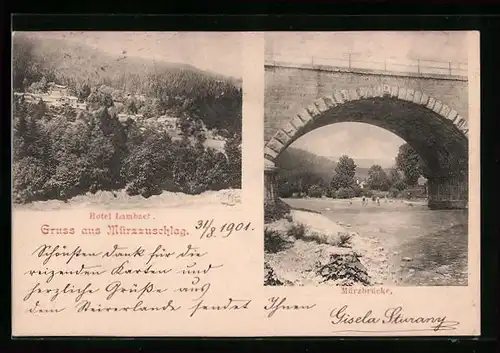 Hotel Lambach.
Gruss aus Mürzzuschlag. 31/8 1901.
Mürzbrücke.
Schönsten Dank für die
reizenden Karten und
herzliche Grüße aus
dem Steirerlande sendet Ihnen
Gisela Sturany